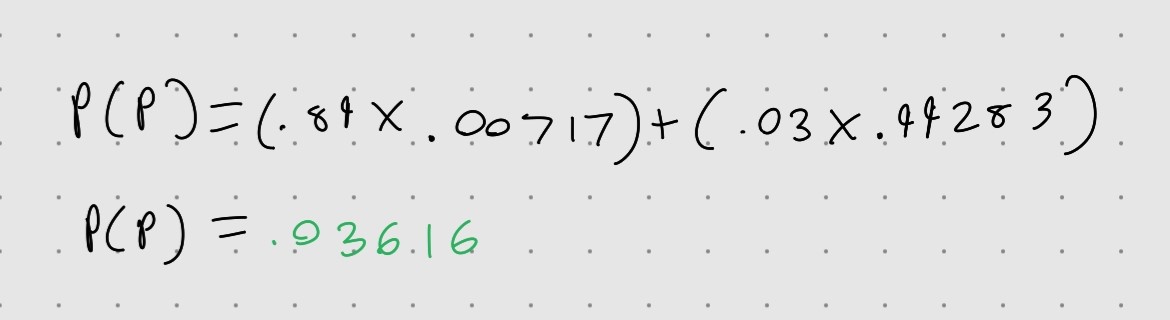 P(P)=(.89X.00717)+(.03X.99283)
P(P) = .03616